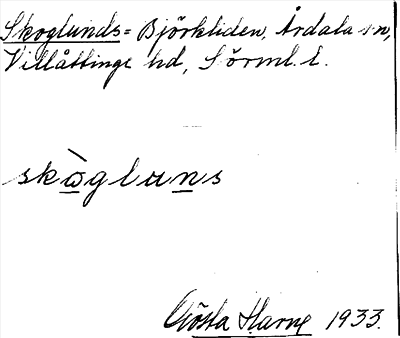 Skoglunds = Björkliden, Årdala sn,
Villåttinge hd, Sörml. l.
skòglɯns
Gösta Harne 1933.